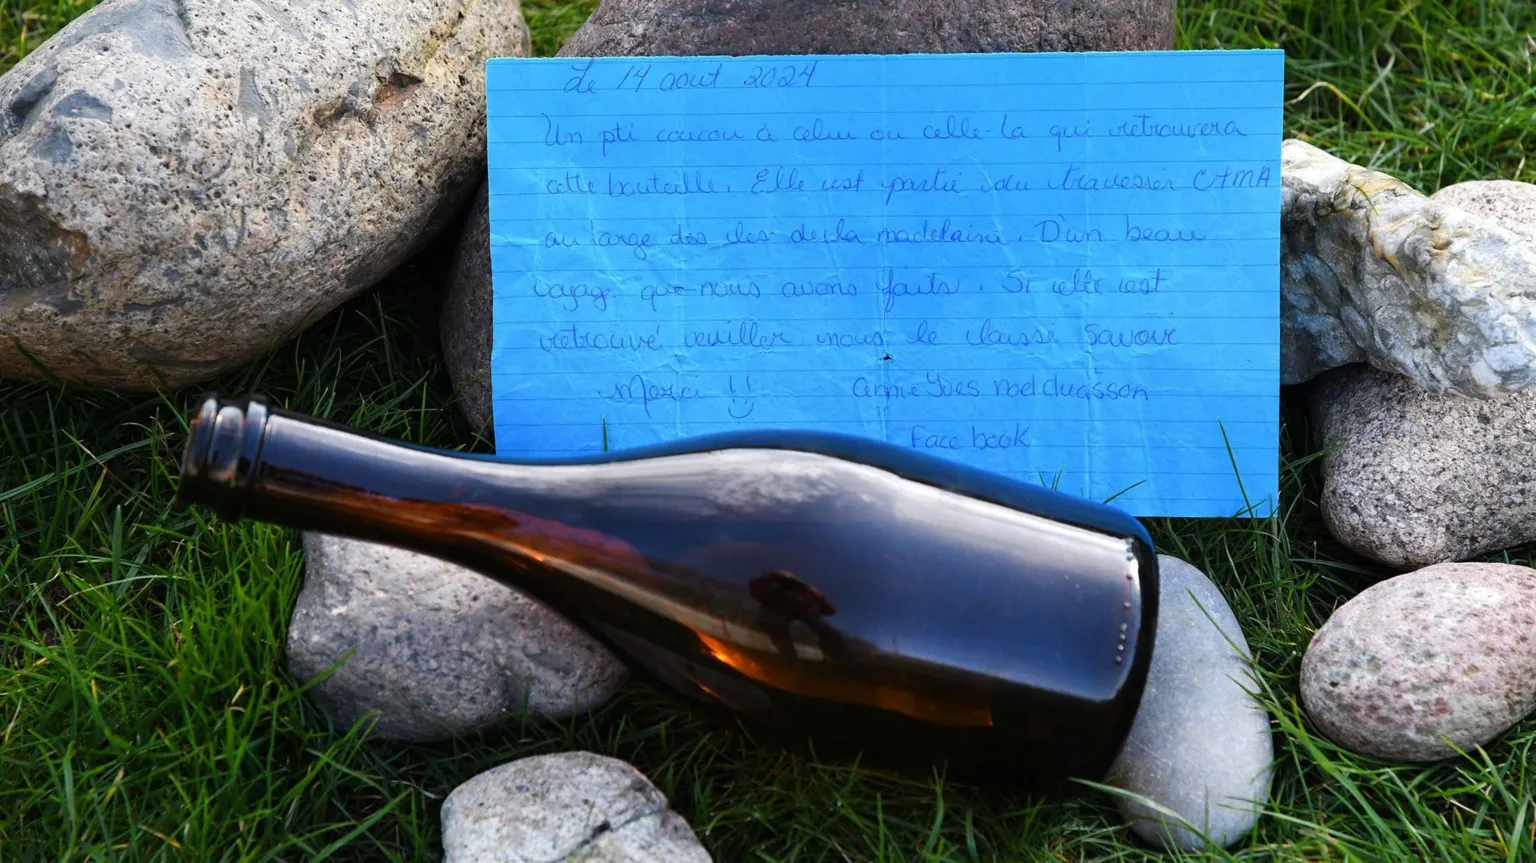 Le 14 aout 2024
Un pti coucou à celui ou celle-la qui retrouvera
cette bouteille. Elle est partie du traversier CTMA
au large des iles de la madelaine. D'un beau
voyage que nous avons faits. Si elle est
retrouvé veuiller nous le laissé savoir
Merci !!
Annie Yves noel duasson
Face book